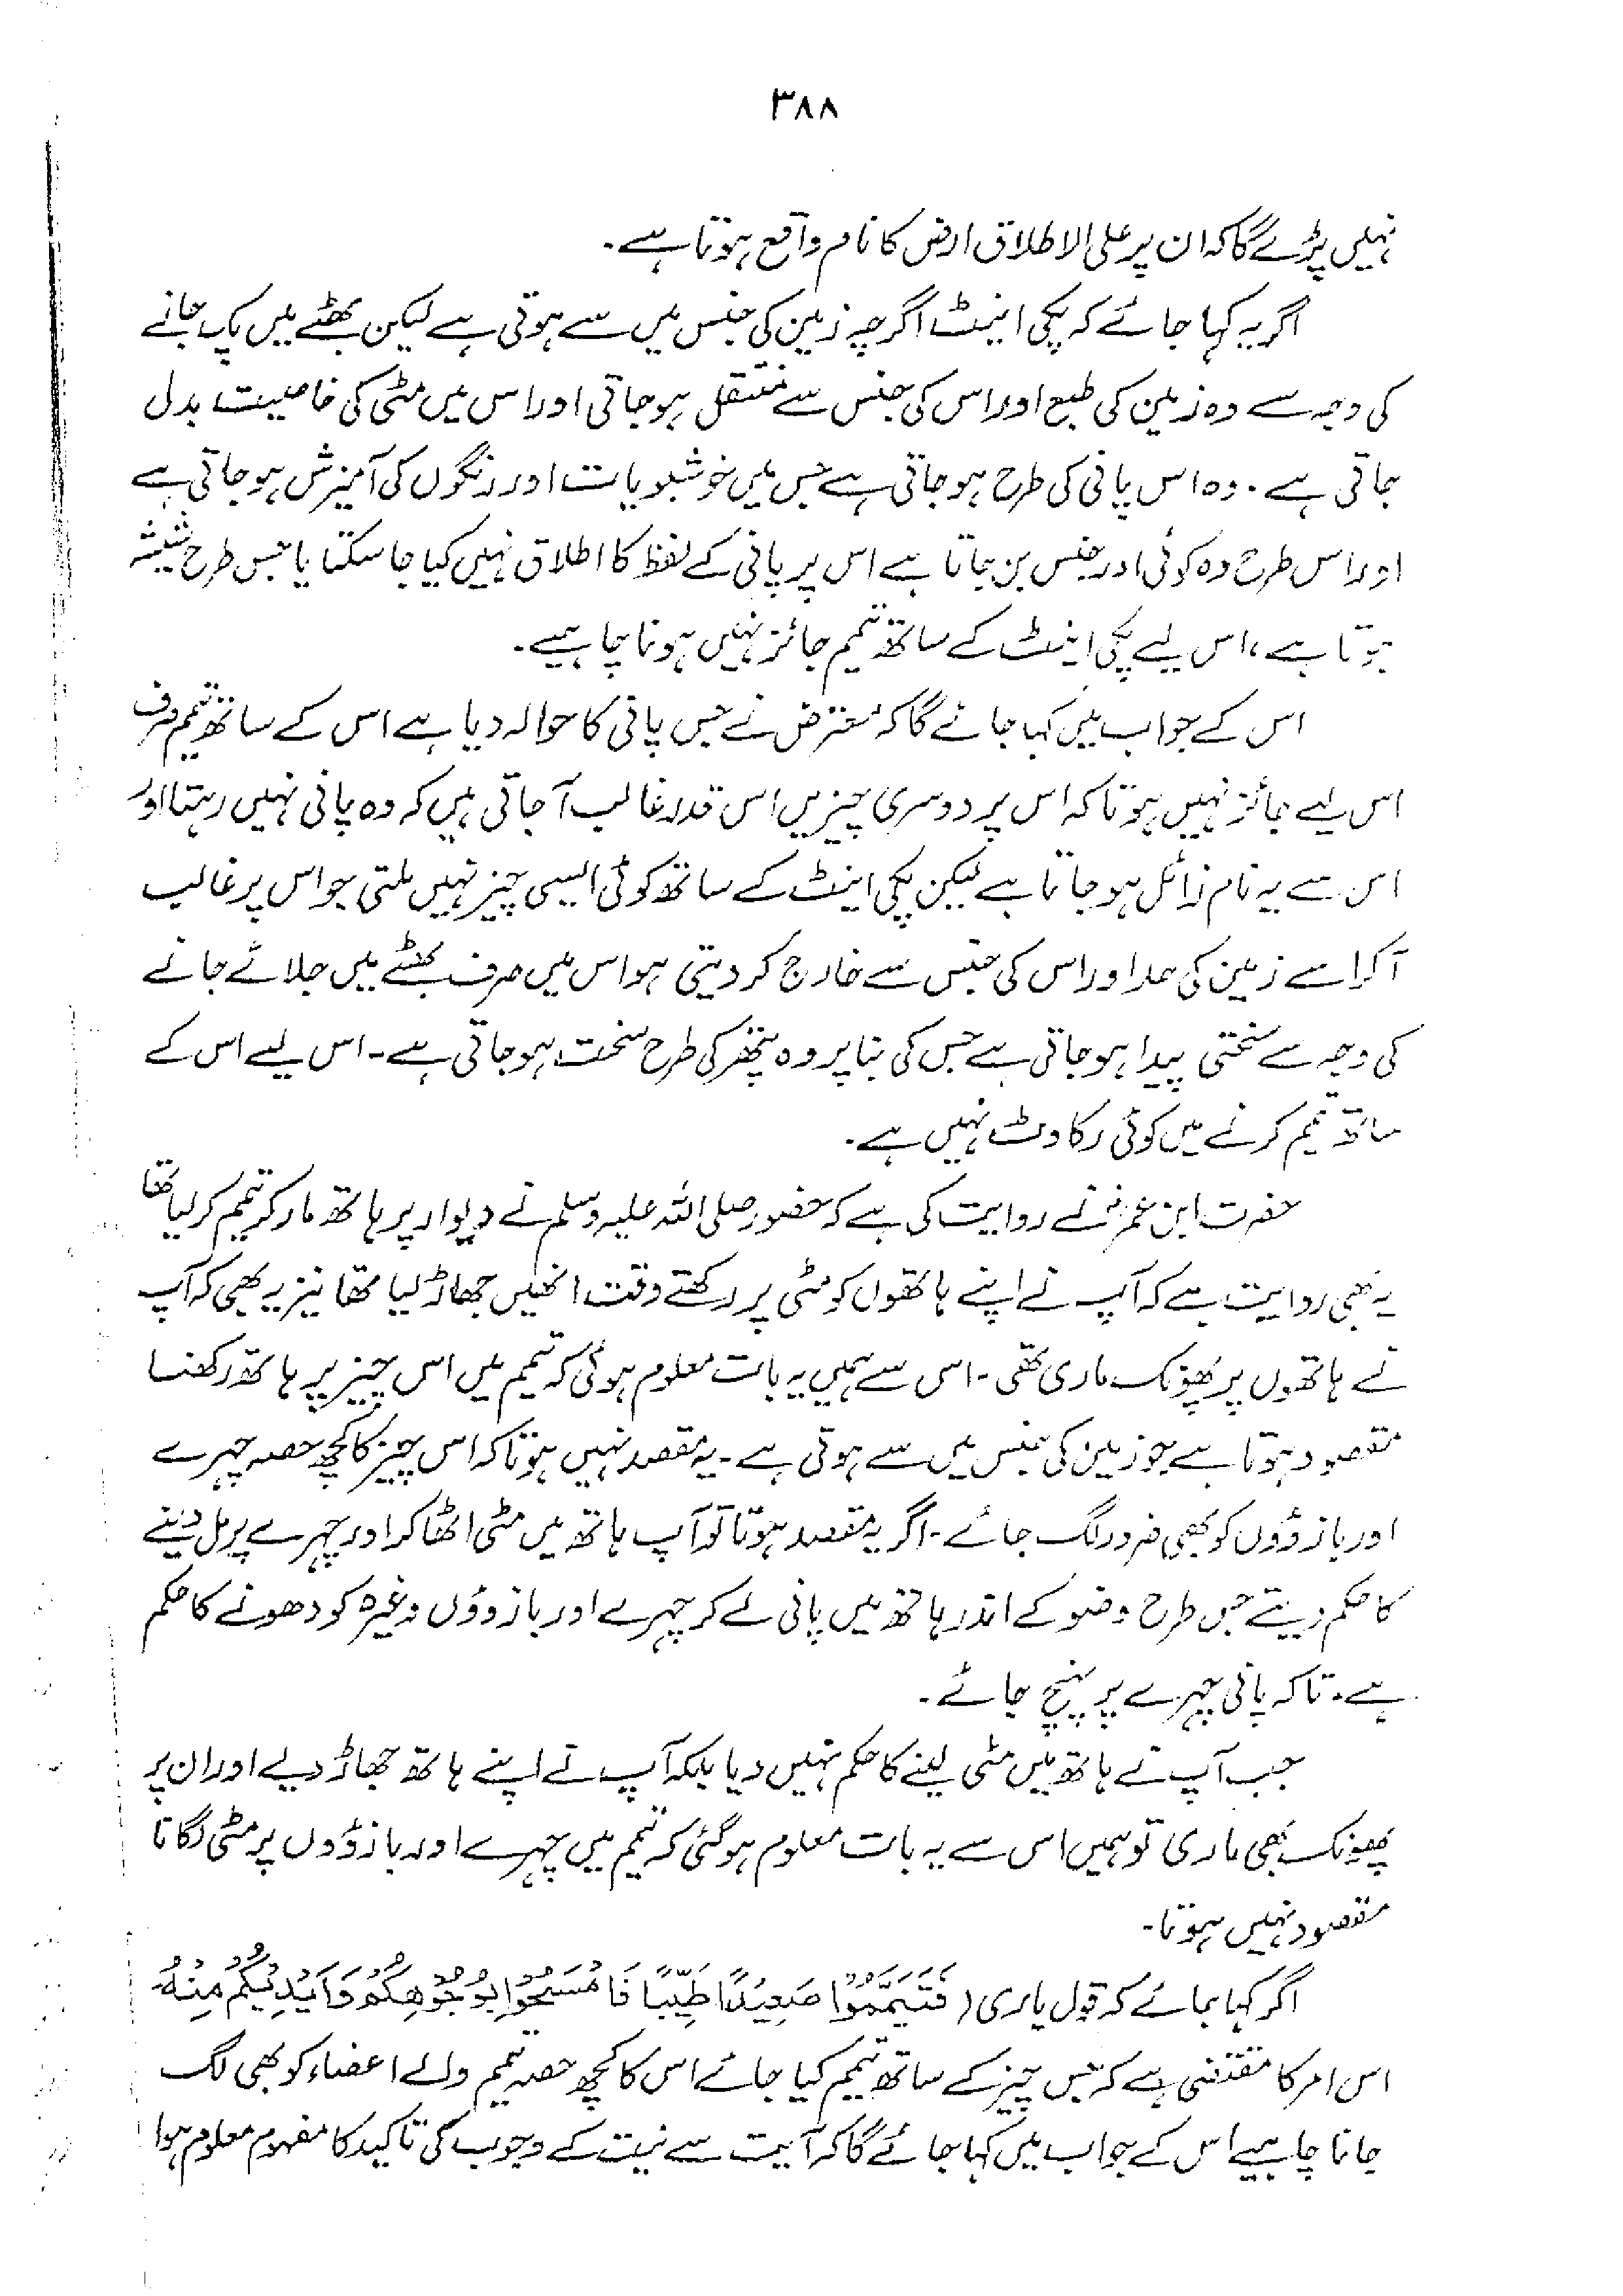 ۳۸۸
نہیں پڑے گا کہ ان پر علی الاطلاق ارض کا نام واقع ہوتا ہے۔
اگر یہ کہا جائے کہ پکی اینٹ اگرچہ زمین کی جنس میں سے ہوتی ہے لیکن بھٹے میں پک جانے
کی وجہ سے وہ زمین کی طبع اور اس کی جنس سے منتقل ہو جاتی اور اس میں مٹی کی خاصیت بدل
جاتی ہے۔ وہ اس پانی کی طرح ہو جاتی ہے جس میں خوشبویات اور رنگوں کی آمیزش ہو جاتی ہے
اور اس طرح وہ کوئی اور جنس بن جاتا ہے اس پر پانی کے لفظ کا اطلاق نہیں کیا جا سکتا یا جس طرح شیشہ
ہوتا ہے، اس لیے پکی اینٹ کے ساتھ تیمم جائز نہیں ہونا چاہیے۔
اس کے جواب میں کہا جائے گا کہ معترض نے جس پانی کا حوالہ دیا ہے اس کے ساتھ تیمم صرف
اس لیے جائز نہیں ہوتا کہ اس پر دوسری چیزیں اس قدر غالب آ جاتی ہیں کہ وہ پانی نہیں رہتا اور
اس سے یہ نام زائل ہو جاتا ہے لیکن پکی اینٹ کے ساتھ کوئی ایسی چیز نہیں ملتی جو اس پر غالب
آ کر اسے زمین کی حد اور اس کی جنس سے خارج کر دیتی ہو اس میں صرف بھٹے میں جلائے جانے
کی وجہ سے سختی پیدا ہو جاتی ہے جس کی بنا پر وہ پتھر کی طرح سخت ہو جاتی ہے۔ اس لیے اس کے
ساتھ تیمم کرنے میں کوئی رکاوٹ نہیں ہے۔
حضرت ابن عمرؓ نے روایت کی ہے کہ حضور صلی اللہ علیہ وسلم نے دیوار پر ہاتھ مار کر تیمم کر لیا تھا
یہ بھی روایت ہے کہ آپ نے اپنے ہاتھوں کو مٹی پر رکھتے وقت انھیں جھاڑ لیا تھا نیز یہ بھی کہ آپ
نے ہاتھوں پر پھونک ماری تھی۔ اس سے ہمیں یہ بات معلوم ہوئی کہ تیمم میں اس چیز پر ہاتھ رکھنا
مقصود ہوتا ہے جو زمین کی جنس میں سے ہوتی ہے۔ یہ مقصد نہیں ہوتا کہ اس چیز کا کچھ حصہ چہرے
اور بازوؤں کو بھی ضرور لگ جائے۔ اگر یہ مقصد ہوتا تو آپ ہاتھ میں مٹی اٹھا کر اور چہرے پر مل دینے
کا حکم دیتے جس طرح وضو کے اندر ہاتھ میں پانی لے کر چہرے اور بازوؤں وغیرہ کو دھونے کا حکم
ہے۔ تاکہ پانی چہرے پر پہنچ جائے۔
جب آپ نے ہاتھ میں مٹی لینے کا حکم نہیں دیا بلکہ آپ نے اپنے ہاتھ جھاڑ دیے اور ان پر
پھونک بھی ماری تو ہمیں اس سے یہ بات معلوم ہو گئی کہ تیمم میں چہرے اور بازوؤں پر مٹی لگانا
مقصود نہیں ہوتا۔
اگر کہا جائے کہ قول باری (فَتَيَمَّمُوْا صَعِيْدًا طَيِّبًا فَامْسَحُوْا بِوُجُوْهِكُمْ وَاَيْدِيْكُمْ مِنْهُ
اس امر کا مقتضی ہے کہ جس چیز کے ساتھ تیمم کیا جائے اس کا کچھ حصہ تیمم والے اعضاء کو بھی لگ
جانا چاہیے اس کے جواب میں کہا جائے گا کہ آیت سے نیت کے وجوب کی تاکید کا مفہوم معلوم ہوا